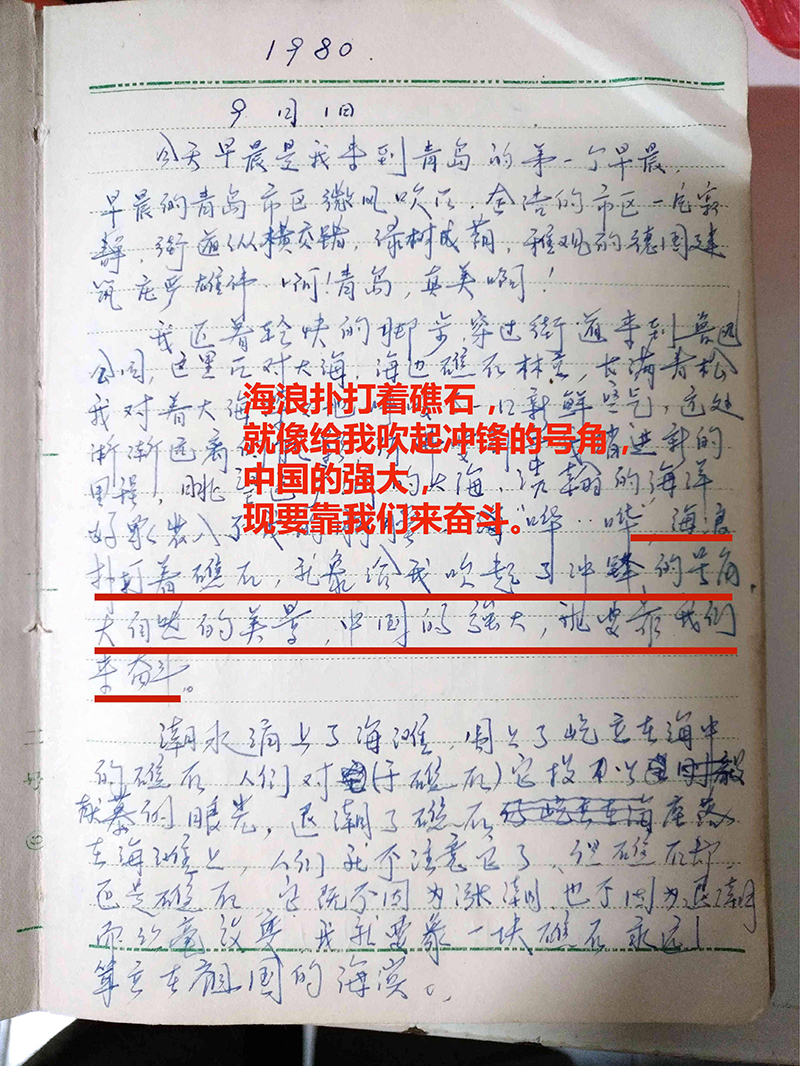 1980.
9月1日
今天早晨是我来到青岛的第一个早晨.
早晨的青岛市区微风吹,全浩的市区一片寂
静,街道纵横交错,绿树成荫,雅观的德国建
筑庄严雄伟.啊!青岛,真美啊!
我迈着轻快的脚步,穿过街道来到鲁迅
公园,这里面对大海,海边礁石林立,长满青松
我对着大海 一口新鲜空气,远处
渐渐远离 进新的
里程,眺 的大海.浩翰的海洋
好象装入了 "哗…哗",海浪
扑打着礁石,就象给我吹起了冲锋的号角
大自然的美景,中国的强大,现要靠我们
来奋斗。
海浪扑打着礁石,
就像给我吹起冲锋的号角,
中国的强大,
现要靠我们来奋斗。
潮水涌上了海滩,围上了屹立在海中
的礁石.人们对(于礁石)它投以
献慕的眼光,退潮了礁石座落
在海滩上,人们就不注意它了,但礁石却
还是礁石.它既不因为涨潮.也不因为退潮
而丝毫改变.我就要象一块礁石永远
耸立在祖国的海滨。
二